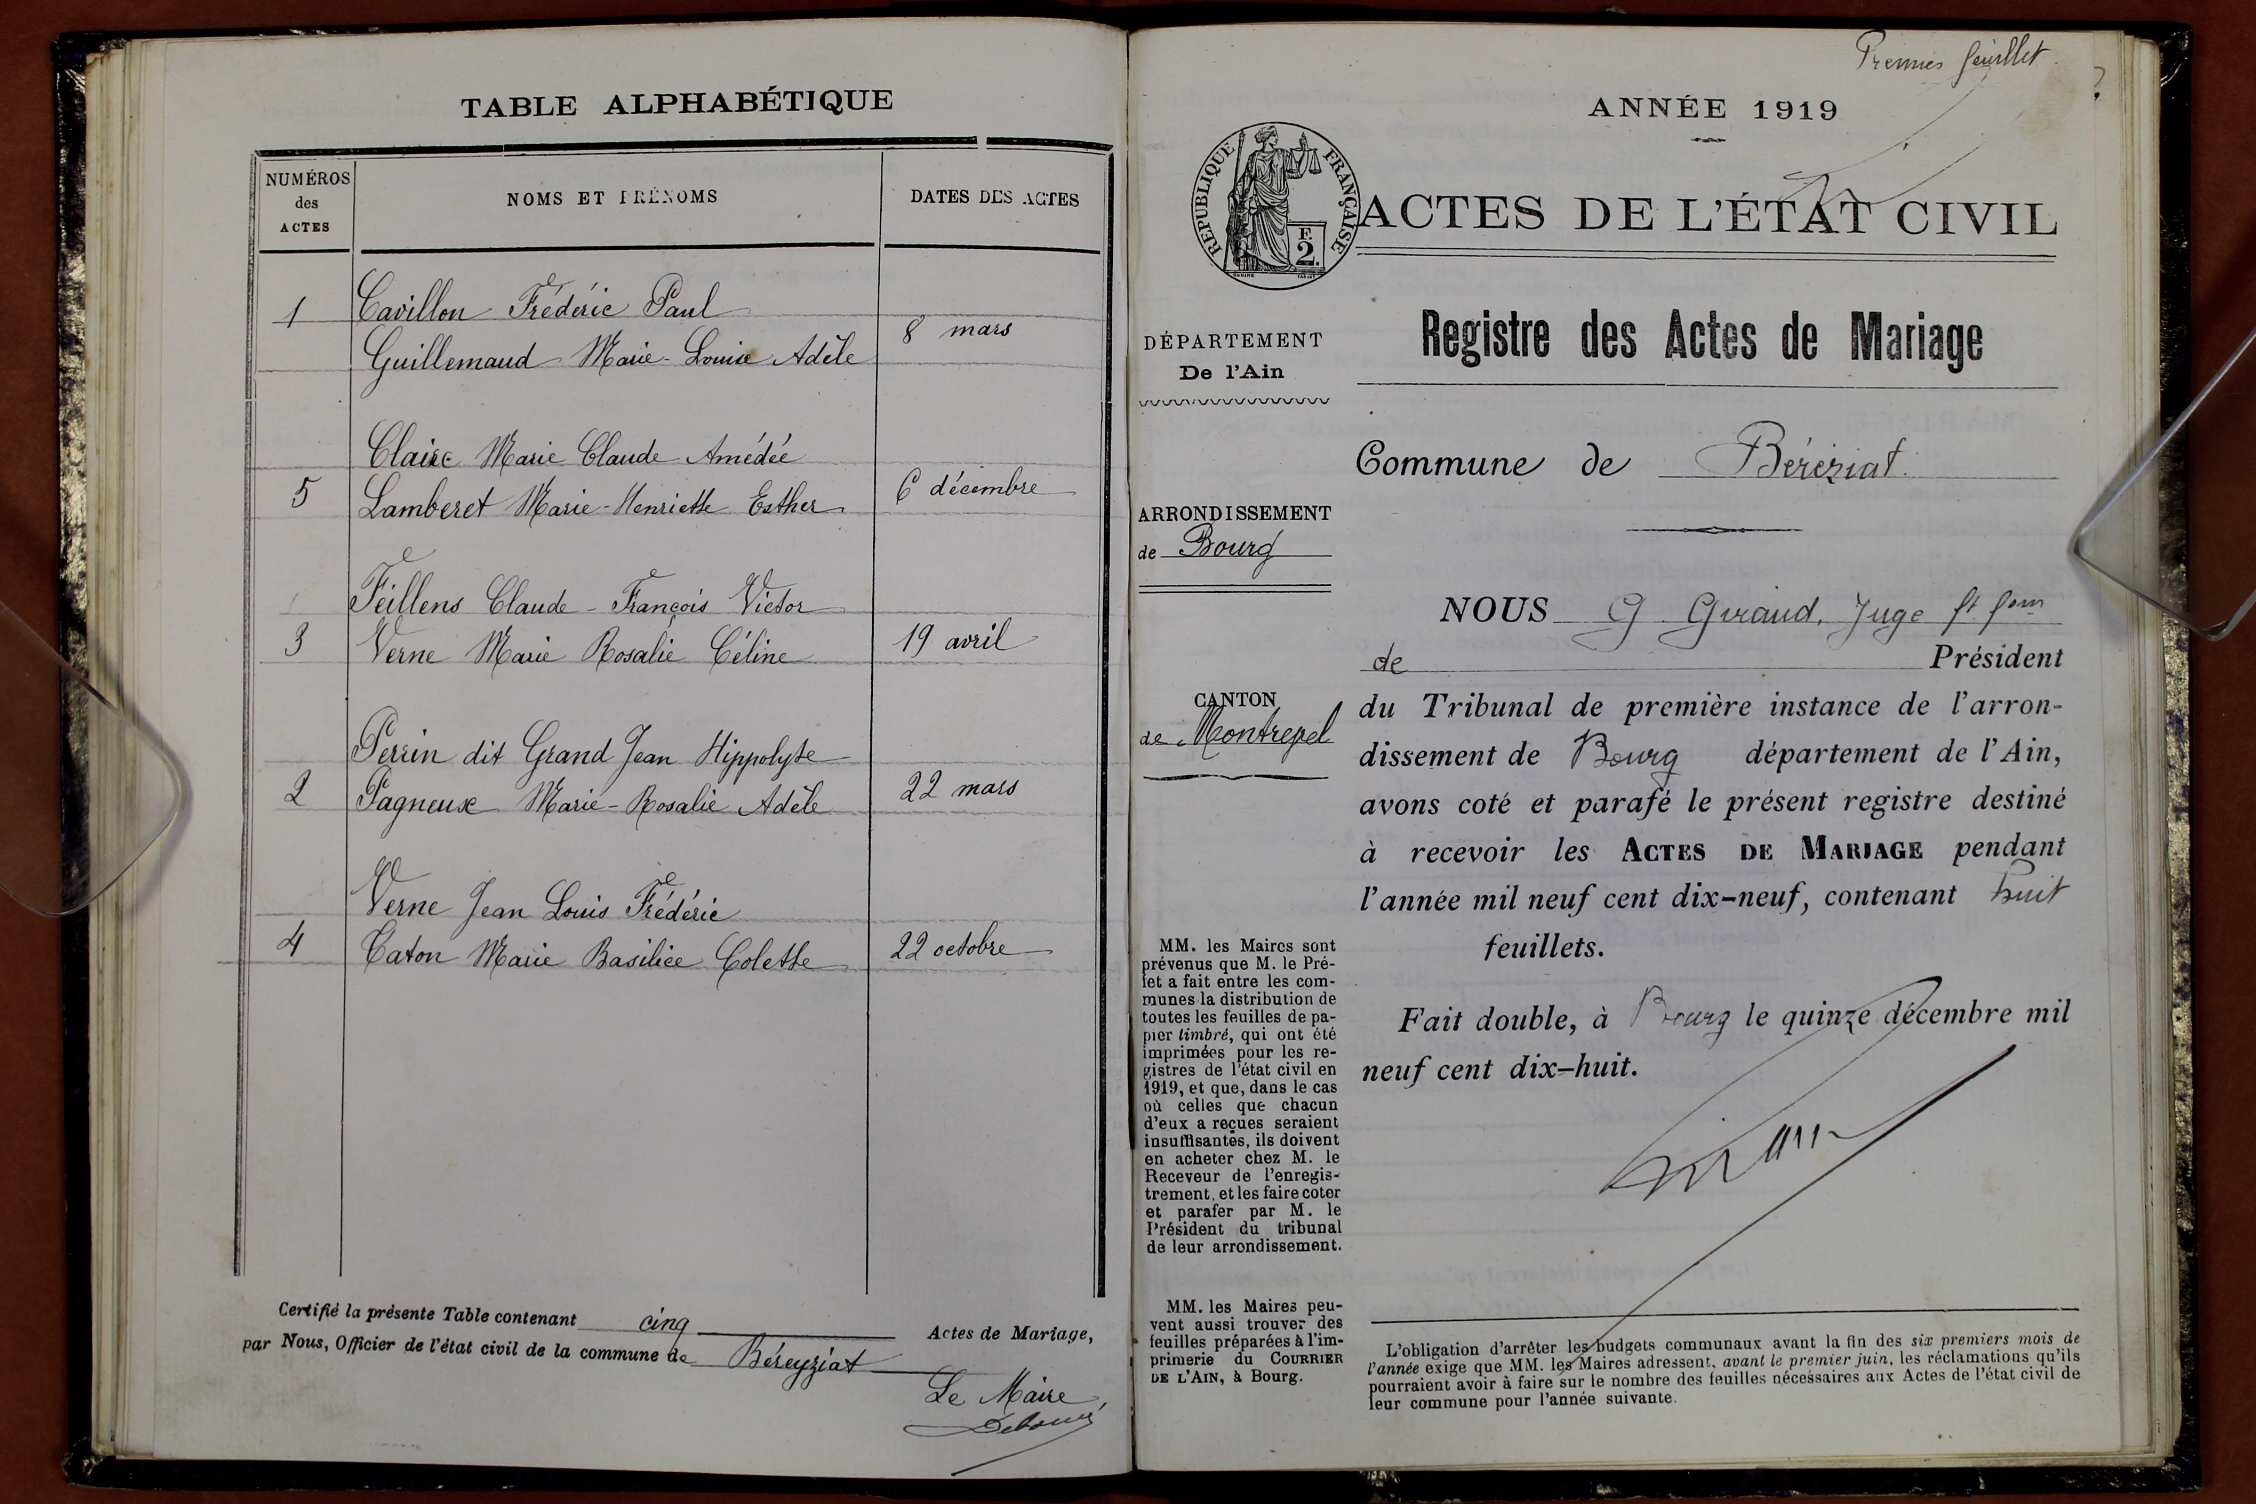 TABLE ALPHABÉTIQUE
NUMÉROS
des
ACTES
NOMS ET PRÉNOMS
DATES DES ACTES
1
Cavillon Frédéric Paul
Guillemaud Marie-Louise Adèle
8 mars
Claire Marie Claude Amédée
5
Lamberet Marie-Henriette Esther
6 décembre
Feillens Claude-François Victor
3
Verne Marie Rosalie Céline
19 avril
Perrin dit Grand Jean Hippolyte
2
Pagneux Marie-Rosalie Adèle
22 mars
Verne Jean Louis Frédéric
4
Caton Marie Basilice Colette
22 octobre
Certifié la présente Table contenant cinq Actes de Mariage,
par Nous, Officier de l'état civil de la commune de Béreyziat
Le Maire
Premier feuillet
?
ANNÉE 1919
RÉPUBLIQUE FRANÇAISE
F.
2.
ACTES DE L'ÉTAT CIVIL
Registre des Actes de Mariage
DÉPARTEMENT
De l'Ain
ARRONDISSEMENT
de Bourg
CANTON
de Montrevel
MM. les Maires sont
prévenus que M. le Pré-
fet a fait entre les com-
munes la distribution de
toutes les feuilles de pa-
pier timbré, qui ont été
imprimées pour les re-
gistres de l'état civil en
1919, et que, dans le cas
où celles que chacun
d'eux a reçues seraient
insuffisantes, ils doivent
en acheter chez M. le
Receveur de l'enregis-
trement, et les faire coter
et parafer par M. le
Président du tribunal
de leur arrondissement.
MM. les Maires peu-
vent aussi trouver des
feuilles préparées à l'im-
primerie du COURRIER
DE L'AIN, à Bourg.
Commune de Béréziat
NOUS G Giraud, Juge ft fons
de Président
du Tribunal de première instance de l'arron-
dissement de Bourg département de l'Ain,
avons coté et parafé le présent registre destiné
à recevoir les ACTES DE MARIAGE pendant
l'année mil neuf cent dix-neuf, contenant huit
feuillets.
Fait double, à Bourg le quinze décembre mil
neuf cent dix-huit.
L'obligation d'arrêter les budgets communaux avant la fin des six premiers mois de
l'année exige que MM. les Maires adressent, avant le premier juin, les réclamations qu'ils
pourraient avoir à faire sur le nombre des feuilles nécessaires aux Actes de l'état civil de
leur commune pour l'année suivante.